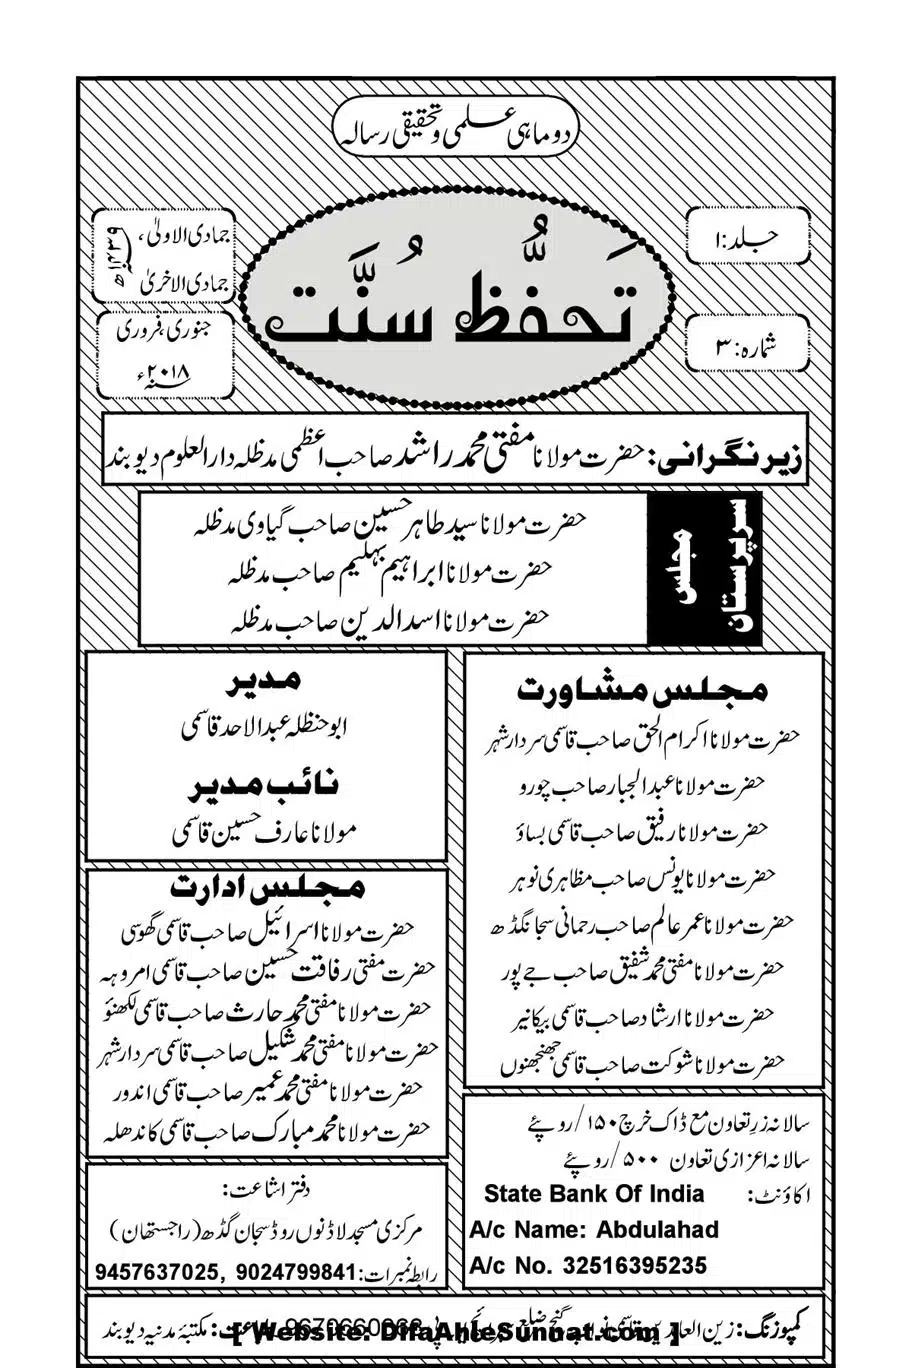 دو ماہی علمی و تحقیقی رسالہ
جلد: ۱
شمارہ: ۳
تَحفُّظِ سُنَّت
جمادی الاولیٰ،
جمادی الاخریٰ
۱۴۳۹ھ
جنوری، فروری
۲۰۱۸ء
زیر نگرانی: حضرت مولانا مفتی محمد راشد صاحب اعظمی مدظلہ دارالعلوم دیوبند
مجلس سرپرستان
حضرت مولانا سید طاہر حسین صاحب گیاوی مدظلہ
حضرت مولانا ابراہیم بہلیم صاحب مدظلہ
حضرت مولانا اسد الدین صاحب مدظلہ
مجلس مشاورت
حضرت مولانا اکرام الحق صاحب قاسمی سردارشہر
حضرت مولانا عبدالجبار صاحب چورو
حضرت مولانا رفیق صاحب قاسمی بساؤ
حضرت مولانا یونس صاحب مظاہری نوہر
حضرت مولانا عمر عالم صاحب رحمانی سجانگڈھ
حضرت مولانا مفتی محمد شفیق صاحب جے پور
حضرت مولانا ارشاد صاحب قاسمی بیکانیر
حضرت مولانا شوکت صاحب قاسمی جھنجھنوں
سالانہ زرِ تعاون مع ڈاک خرچ ۱۵۰/روپئے
سالانہ اعزازی تعاون ۵۰۰/روپئے
اکاؤنٹ: State Bank Of India
A/c Name: Abdulahad
A/c No. 32516395235
مدیر
ابوحنظلہ عبدالاحد قاسمی
نائب مدیر
مولانا عارف حسین قاسمی
مجلس ادارت
حضرت مولانا اسرائیل صاحب قاسمی گھوسی
حضرت مفتی رفاقت حسین صاحب قاسمی امروہہ
حضرت مولانا مفتی محمد حارث صاحب قاسمی لکھنؤ
حضرت مولانا مفتی محمد شکیل صاحب قاسمی سردارشہر
حضرت مولانا مفتی محمد عمیر صاحب قاسمی اندور
حضرت مولانا محمد مبارک صاحب قاسمی کاندھلہ
دفتر اشاعت:
مرکزی مسجد لاڈنوں روڈ سجان گڈھ (راجستھان)
رابطہ نمبرات: 9457637025, 9024799841
کمپوزنگ: زین العابدین قاسمی مکتبۂ مدنیہ دیوبند
[ Website: DifaAhleSunnat.com ]